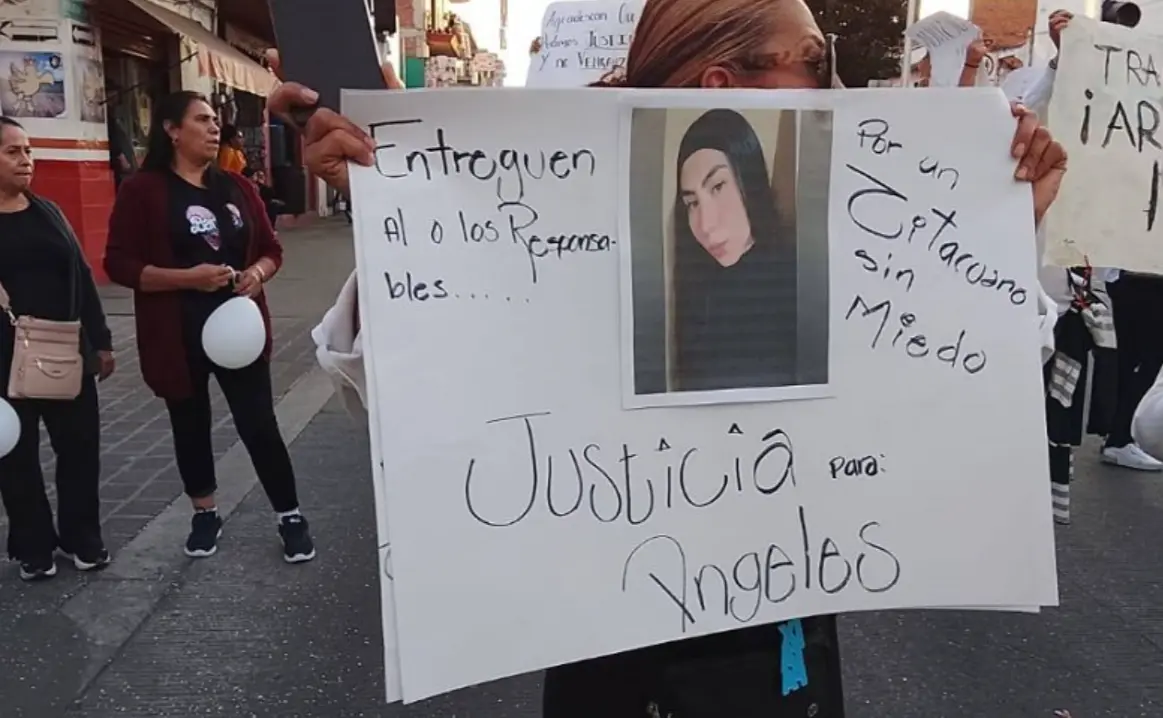 Agradescan Cu
JUSTI
Y no VENGAN
Entreguen
Al o los Responsa-
bles......
Por un
Zitacuaro
sin
Miedo
Justicia para:
Angeles
TRA
¡AR